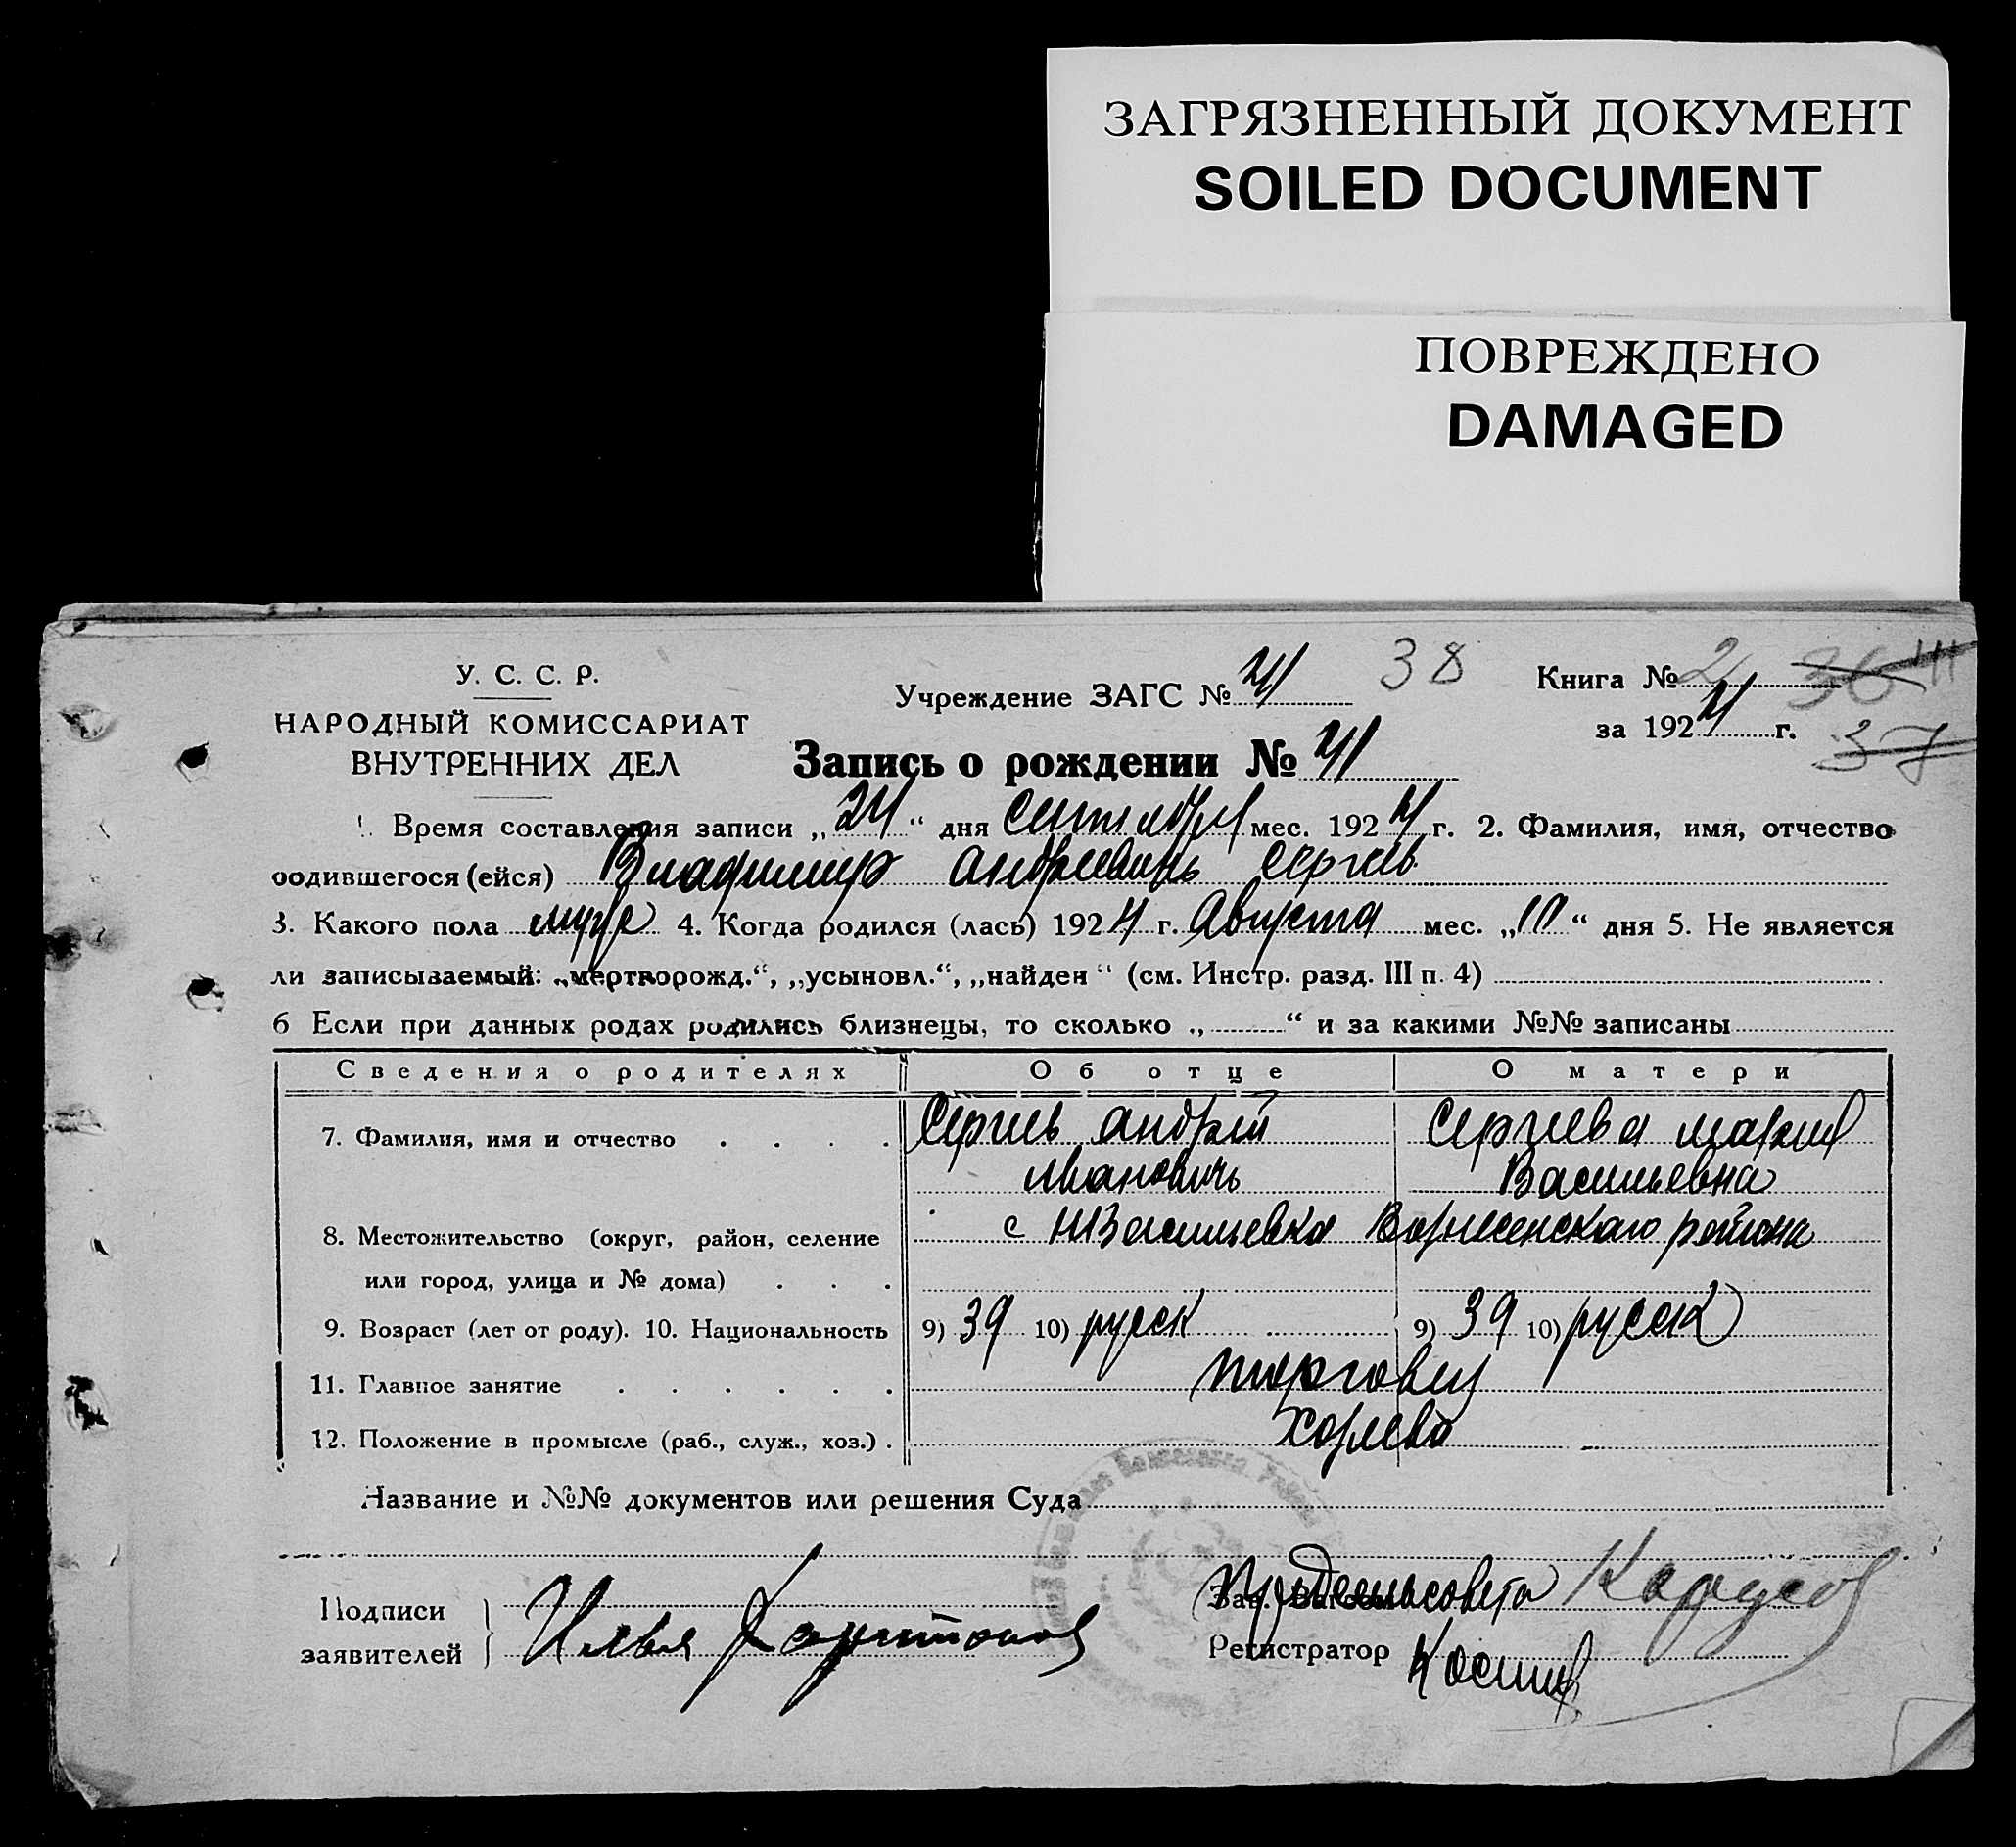 ЗАГРЯЗНЕННЫЙ ДОКУМЕНТ
SOILED DOCUMENT
ПОВРЕЖДЕНО
DAMAGED
У. С. С. Р.
НАРОДНЫЙ КОМИССАРИАТ
ВНУТРЕННИХ ДЕЛ
Учреждение ЗАГС № 41 38
Книга № 2 36
за 1924 г. 37
Запись о рождении № 41
1. Время составления записи „24“ дня Сентября мес. 1924 г. 2. Фамилия, имя, отчество
родившегося (ейся) Владимир Андреевичь Сергеев
3. Какого пола муж 4. Когда родился (лась) 1924 г. Августа мес. „10“ дня 5. Не является
ли записываемый: „мертворожд.“, „усыновл.“, „найден“ (см. Инстр. разд. III п. 4)
6 Если при данных родах родились близнецы, то сколько „ “ и за какими №№ записаны
Сведения о родителях Об отце О матери
7. Фамилия, имя и отчество Сергеев Андрей Сергеева Мария
Ивановичь Васильевна
8. Местожительство (округ, район, селение с Васильевка района
или город, улица и № дома)
9. Возраст (лет от роду). 10. Национальность 9) 39 10) русск 9) 39 10) русск
11. Главное занятие торговец
12. Положение в промысле (раб., служ., хоз.)
Название и №№ документов или решения Суда
Подписи
заявителей Илья Харитонов
Предсельсовета
Регистратор